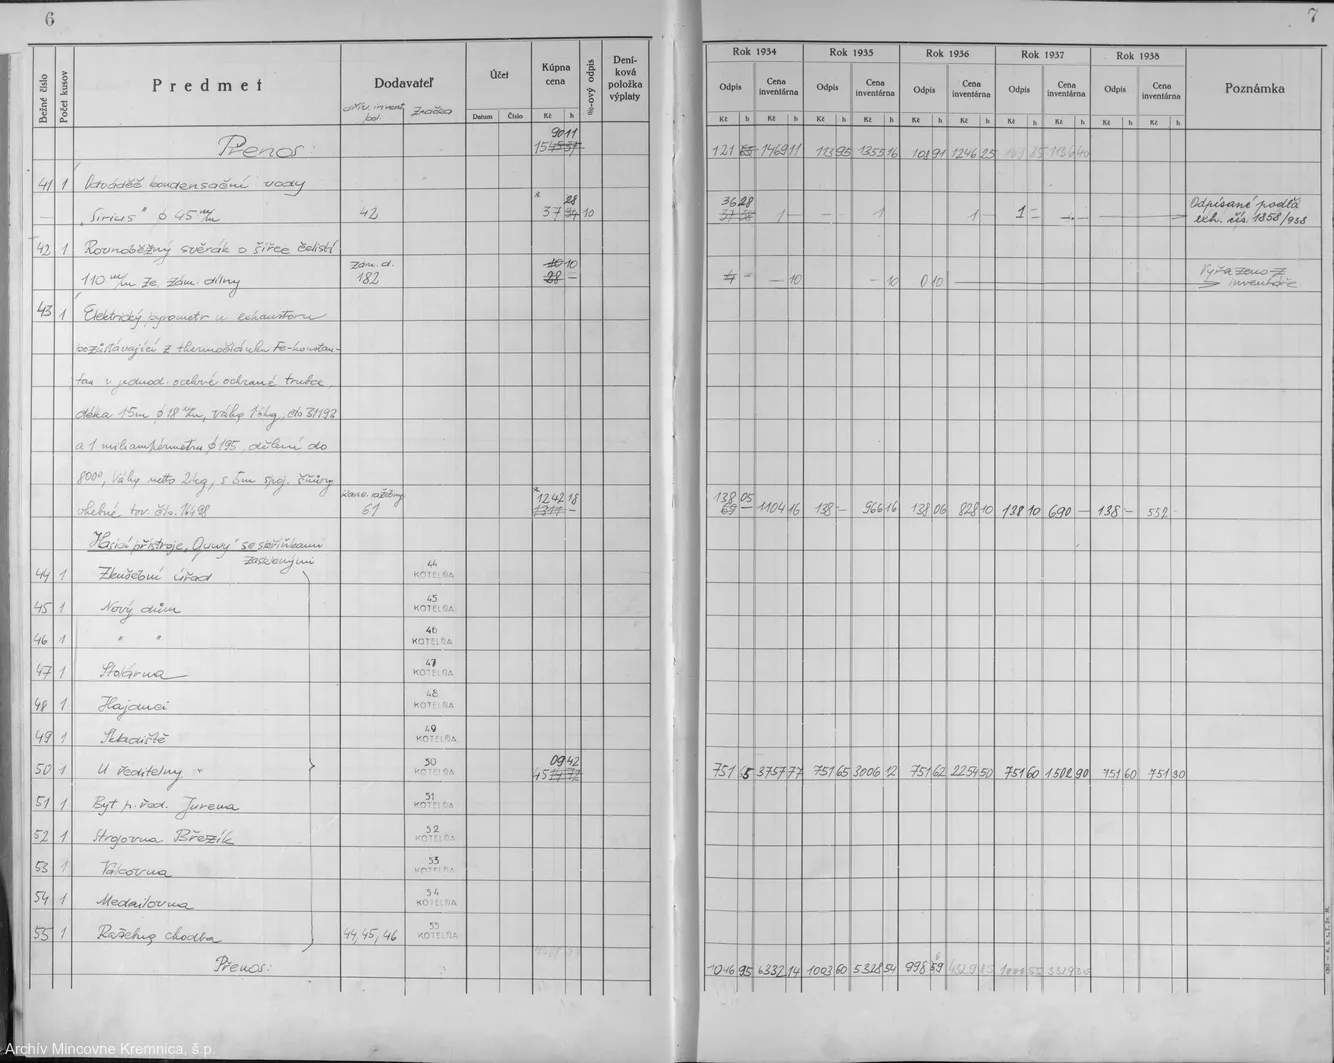 6
Bežné číslo
Počet kusov
Predmet
Dodavateľ
Značka
Účet
Datum
Číslo
Kúpna cena
Kč h
%-ový odpis
Deníková položka výplaty
Přenos:
9011
154537
41 1 Odváděč kondensační vody
„Sirius" ø 45 m/m 42 37 28 10
42 1 Rovnoběžný svěrák o šířce čelistí
110 m/m ze zám. dílny zám. d. 182 10 10 28 —
43 1 Elektrický pyrometr u exhaustoru
pozůstávající z thermočlánku Fe-konstan-
tan v jednod. ocelové ochrané trubce
délka 15m ø 18 m/m, váhy 16kg, čís 31193
a 1 miliampérmetru ø 195, dělení do
800°, váhy netto 2kg, s 5m spoj. šňůry
ohebné tov. čís. 16498 61 1242 18 1311 —
Hasicí přístroje „Quwy" se skříňkami
zasklenými
44 1 Zkušební úřad 44 KOTELŇA
45 1 Nový dům 45 KOTELŇA
46 1 " " 46 KOTELŇA
47 1 Stolárna 47 KOTELŇA
48 1 Hajduci 48 KOTELŇA
49 1 Skladiště 49 KOTELŇA
50 1 U ředitelny " 50 KOTELŇA 09 42
51 1 Byt p. řed. Jurema 51 KOTELŇA
52 1 Strojovna Březík 52 KOTELŇA
53 1 Válcovna 53 KOTELŇA
54 1 Medailovna 54 KOTELŇA
55 1 Ražebny chodba 44, 45, 46 55 KOTELŇA
Přenos:
7
Rok 1934 Rok 1935 Rok 1936 Rok 1937 Rok 1938
Odpis Cena inventárna Odpis Cena inventárna Odpis Cena inventárna Odpis Cena inventárna Odpis Cena inventárna
Poznámka
Kč h Kč h Kč h Kč h Kč h Kč h Kč h Kč h Kč h Kč h
121 65 1469 11 113 95 1355 16 108 91 1246 25 1136 40
36 28
37 38 1 — — 1 1 — 1 =
Odpísané podľa
exh. čís. 1858/938
4 = — 10 — 10 0 10
Vyřazeno z
inventáře
138 05
69 — 1104 16 138 — 966 16 138 06 828 10 138 10 690 — 138 — 552 —
751 65 3757 77 751 65 3006 12 751 62 2254 50 751 60 1502 90 751 60 751 30
1046 95 6332 14 1003 60 5328 54 998 59
Archív Mincovne Kremnica, š.p.